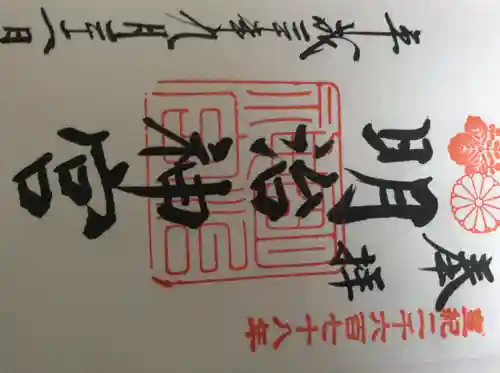 皇紀二千六百七十八年
奉拝
明治神宮
平成三十年九月二十八日